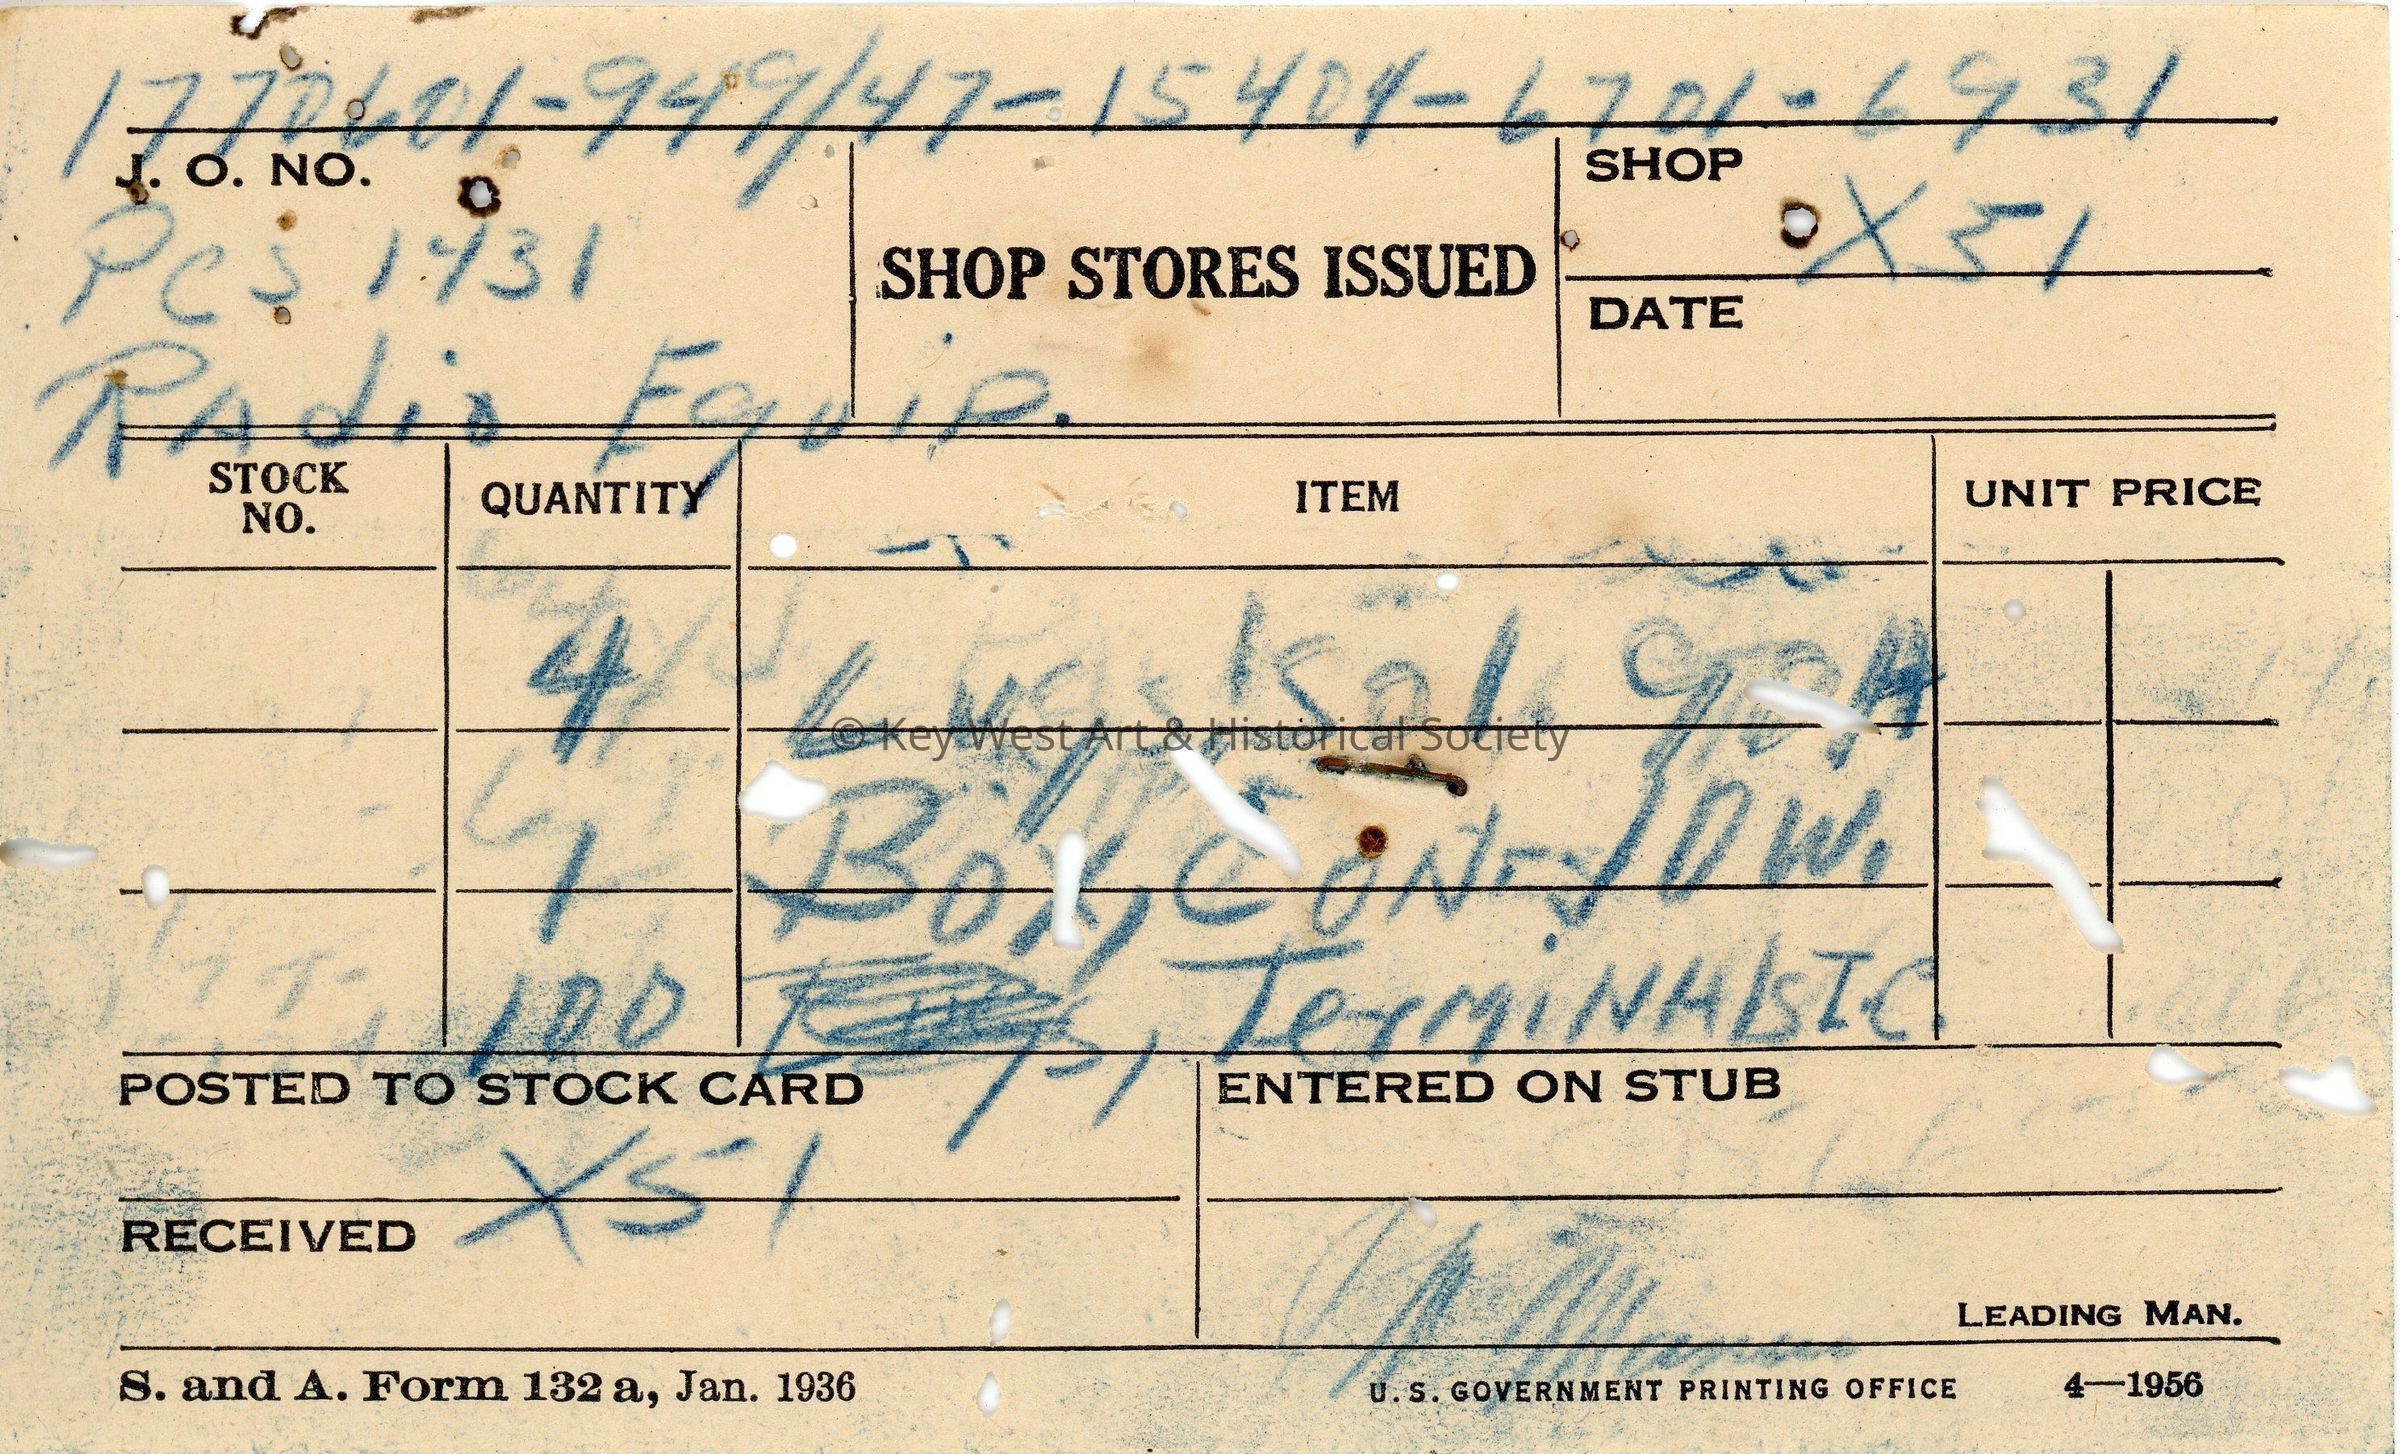 1770601-949/47-15404-6701-6931
J. O. NO.
PCS 1431
Radio Equip.
SHOP STORES ISSUED
SHOP
X51
DATE
STOCK NO.
QUANTITY
ITEM
UNIT PRICE
4
© Key West Art & Historical Society
1 Box, Con-
100 Terminals I.C.
POSTED TO STOCK CARD
ENTERED ON STUB
X51
RECEIVED
LEADING MAN.
S. and A. Form 132a, Jan. 1936
U. S. GOVERNMENT PRINTING OFFICE 4—1956